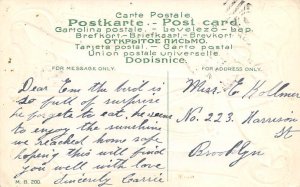 Carte Postale.
Postkarte. - Post card.
Cartolina postale. - Levelező-Lap
Brefkort - Briefkaart - Brevkort
ОТКРЫТОЕ ПИСЬМО.
Tarjeta postal. - Carte postale
Union postale universelle.
DOPISNICE.
FOR MESSAGE ONLY.
FOR ADDRESS ONLY.
Dear Em the bird is
so full of surprise
he forgets to eat, he seems
to enjoy the sunshine
we reached home safe
hoping this will find
you well with love
sincerely Carrie
M. B. 200.
Miss. E.
No. 223. Harrison
St
Brooklyn